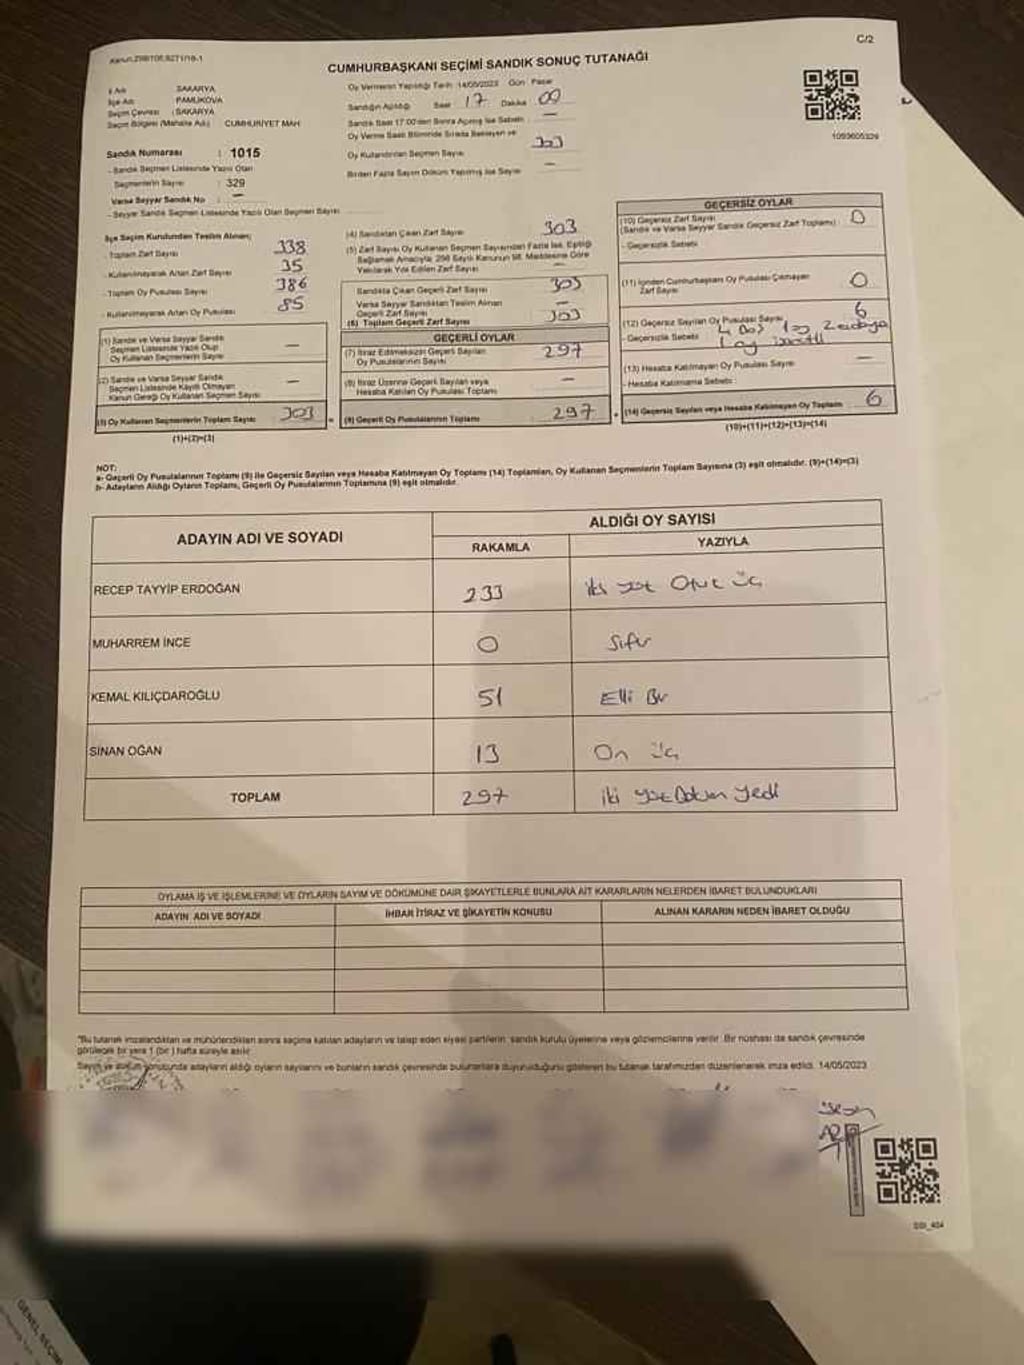 C/2
CUMHURBAŞKANI SEÇİMİ SANDIK SONUÇ TUTANAĞI
İli Adı : SAKARYA
İlçe Adı : PAMUKOVA
Seçim Çevresi : SAKARYA
Seçim Bölgesi (Mahalle Adı) : CUMHURİYET MAH
Sandık Numarası : 1015
- Sandık Seçmen Listesinde Yazılı Olan
Seçmenlerin Sayısı : 329
Varsa Seyyar Sandık No : —
- Seyyar Sandık Seçmen Listesinde Yazılı Olan Seçmen Sayısı
Oy Vermenin Yapıldığı Tarih : 14/05/2023 Gün : Pazar
Sandığın Açıldığı Saat 17 Dakika 00
Sandık Saat 17:00'den Sonra Açılmış İse Sebebi : —
Oy Verme Saati Bitiminde Sırada Bekleyen ve
Oy Kullandırılan Seçmen Sayısı 303
Birden Fazla Sayım Döküm Yapılmış İse Sayısı —
1093605329
İlçe Seçim Kurulundan Teslim Alınan;
- Toplam Zarf Sayısı 338
- Kullanılmayarak Artan Zarf Sayısı 35
- Toplam Oy Pusulası Sayısı 386
- Kullanılmayarak Artan Oy Pusulası 85
(1) Sandık ve Varsa Seyyar Sandık
Seçmen Listesinde Yazılı Olup
Oy Kullanan Seçmenlerin Sayısı —
(2) Sandık ve Varsa Seyyar Sandık
Seçmen Listesinde Kayıtlı Olmayan
Kanun Gereği Oy Kullanan Seçmen Sayısı —
(3) Oy Kullanan Seçmenlerin Toplam Sayısı 303
(1)+(2)=(3)
(4) Sandıktan Çıkan Zarf Sayısı 303
(5) Zarf Sayısı Oy Kullanan Seçmen Sayısından Fazla İse, Eşitliği
Sağlamak Amacıyla; 298 Sayılı Kanunun 98. Maddesine Göre
Yakılarak Yok Edilen Zarf Sayısı —
Sandıkta Çıkan Geçerli Zarf Sayısı 303
Varsa Seyyar Sandıktan Teslim Alınan
Geçerli Zarf Sayısı —
(6) Toplam Geçerli Zarf Sayısı 303
GEÇERLİ OYLAR
(7) İtiraz Edilmeksizin Geçerli Sayılan
Oy Pusulalarının Sayısı 297
(8) İtiraz Üzerine Geçerli Sayılan veya
Hesaba Katılan Oy Pusulası Toplamı —
(9) Geçerli Oy Pusulalarının Toplamı 297
GEÇERSİZ OYLAR
(10) Geçersiz Zarf Sayısı 0
(Sandık ve Varsa Seyyar Sandık Geçersiz Zarf Toplamı)
- Geçersizlik Sebebi
(11) İçinden Cumhurbaşkanı Oy Pusulası Çıkmayan
Zarf Sayısı 0
(12) Geçersiz Sayılan Oy Pusulası Sayısı 6
- Geçersizlik Sebebi
(13) Hesaba Katılmayan Oy Pusulası Sayısı —
- Hesaba Katılmama Sebebi :
(14) Geçersiz Sayılan veya Hesaba Katılmayan Oy Toplamı 6
(10)+(11)+(12)+(13)=(14)
NOT:
a- Geçerli Oy Pusulalarının Toplamı (9) ile Geçersiz Sayılan veya Hesaba Katılmayan Oy Toplamı (14) Toplamları, Oy Kullanan Seçmenlerin Toplam Sayısına (3) eşit olmalıdır. (9)+(14)=(3)
b- Adayların Aldığı Oyların Toplamı, Geçerli Oy Pusulalarının Toplamına (9) eşit olmalıdır.
ADAYIN ADI VE SOYADI
ALDIĞI OY SAYISI
RAKAMLA YAZIYLA
RECEP TAYYİP ERDOĞAN 233 iki yüz Otuz üç
MUHARREM İNCE 0 Sıfır
KEMAL KILIÇDAROĞLU 51 Elli Bir
SİNAN OĞAN 13 On üç
TOPLAM 297 iki yüz Doksan yedi
OYLAMA İŞ VE İŞLEMLERİNE VE OYLARIN SAYIM VE DÖKÜMÜNE DAİR ŞİKAYETLERLE BUNLARA AİT KARARLARIN NELERDEN İBARET BULUNDUKLARI
ADAYIN ADI VE SOYADI İHBAR İTİRAZ VE ŞİKAYETİN KONUSU ALINAN KARARIN NEDEN İBARET OLDUĞU
"Bu tutanak imzalandıktan ve mühürlendikten sonra seçime katılan adayların ve talep eden siyasi partilerin sandık kurulu üyelerine veya gözlemcilerine verilir. Bir nüshası da sandık çevresinde
görülecek bir yere 1 (bir) hafta süreyle asılır.
Sayım ve döküm sonucunda adayların aldığı oyların sayılarını ve bunların sandık çevresinde bulunanlara duyurulduğunu gösteren bu tutanak tarafımızdan düzenlenerek imza edildi. 14/05/2023
GENEL SEÇİM